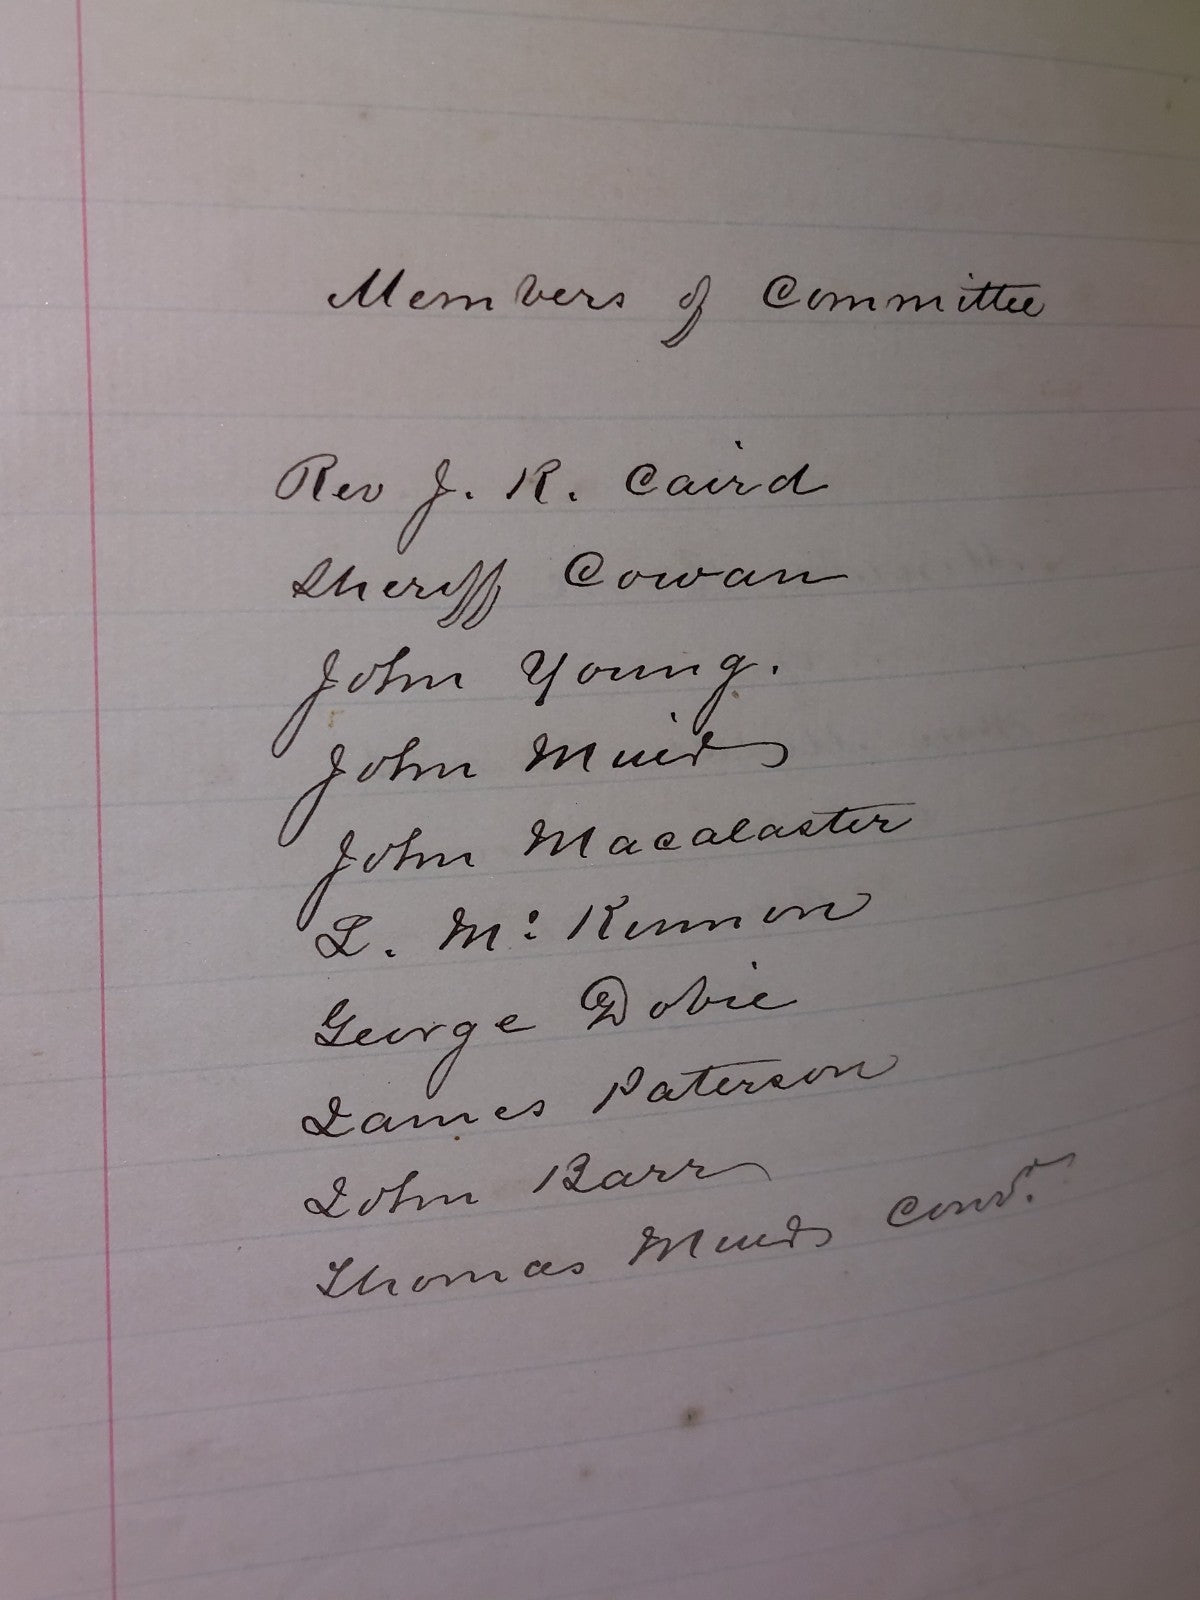 Members of Committee
Rev J. R. Caird
Sheriff Cowan
John Young.
John Muir
John Macalaster
L. Mc: Kinnon
George Dobie
James Paterson
John Barr
Thomas Muir Convr.